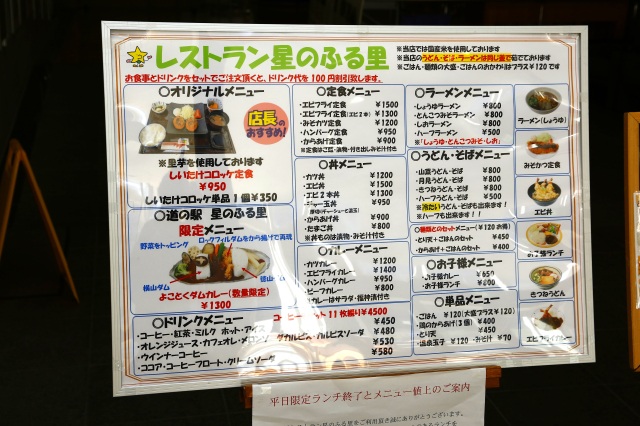 レストラン星のふる里
※当店では国産米を使用しております
※当店のうどん・そば・ラーメンは同じ釜で茹でております
※ごはん・麺類の大盛・ごはんのおかわりはプラス￥120です
お食事とドリンクをセットでご注文頂くと、ドリンク代を100円割引致します。
○オリジナルメニュー
店長の
おすすめ!
※里芋を使用しております
しいたけコロッケ定食
￥950
しいたけコロッケ単品1個￥350
○道の駅 星のふる里
限定メニュー
野菜をトッピング
ロックフィルダムをから揚げで再現
横山ダム
徳山ダム
よことくダムカレー(数量限定)
￥1300
○ドリンクメニュー
・コーヒー・紅茶・ミルク ホット・アイス
・オレンジジュース・カフェオレ・メロンソーダ
カルピス・カルピスソーダ
・ウインナーコーヒー
・ココア・コーヒーフロート・クリームソーダ
コーヒーチケット11枚綴り￥4500
￥450
￥480
￥530
￥580
○定食メニュー
・エビフライ定食 ￥1500
・エビフライ定食(エビ2本) ￥1300
・みそカツ定食 ￥1200
・ハンバーグ定食 ￥950
・からあげ定食 ￥900
※定食はご飯・漬物・味噌汁付
○丼メニュー
・カツ丼 ￥1200
・エビ丼 ￥1500
・エビ2本丼 ￥1300
￥950
・からあげ丼 ￥900
・たまご丼 ￥800
※丼ものは漬物・みそ汁付き
○カレーメニュー
・カツカレー ￥1200
・エビフライカレー ￥1400
・ハンバーグカレー ￥950
・ビーフカレー ￥800
※カレーはサラダ・福神漬付き
○ラーメンメニュー
・しょうゆラーメン ￥800
・とんこつみそラーメン ￥800
・しおラーメン ￥800
・ハーフラーメン ￥500
※「しょうゆ・とんこつみそ・しお」
○うどん・そばメニュー
・山菜うどん・そば ￥800
・月見うどん・そば ￥800
・きつねうどん・そば ￥800
・ハーフうどん・そば ￥500
※冷たいうどん・そばも出来ます!
※ハーフも出来ます!!
○麺類とのセットメニュー(￥120お得)
・とり天+ごはんのセット ￥450
・からあげ+ごはんのセット ￥400
○お子様メニュー
・お子様カレー ￥650
・お子様ランチ ￥800
○単品メニュー
・ごはん ￥120(大盛プラス￥120)
・鶏のからあげ(3個) ￥400
・とり天 ￥450
・温泉玉子 ￥120 ・みそ汁 ￥70
ラーメン(しょうゆ)
みそかつ定食
エビ丼
お子様ランチ
きつねうどん
エビフライカレー
平日限定ランチ終了とメニュー値上のご案内
レストラン星のふる里をご利用頂き誠にありがとうございます。